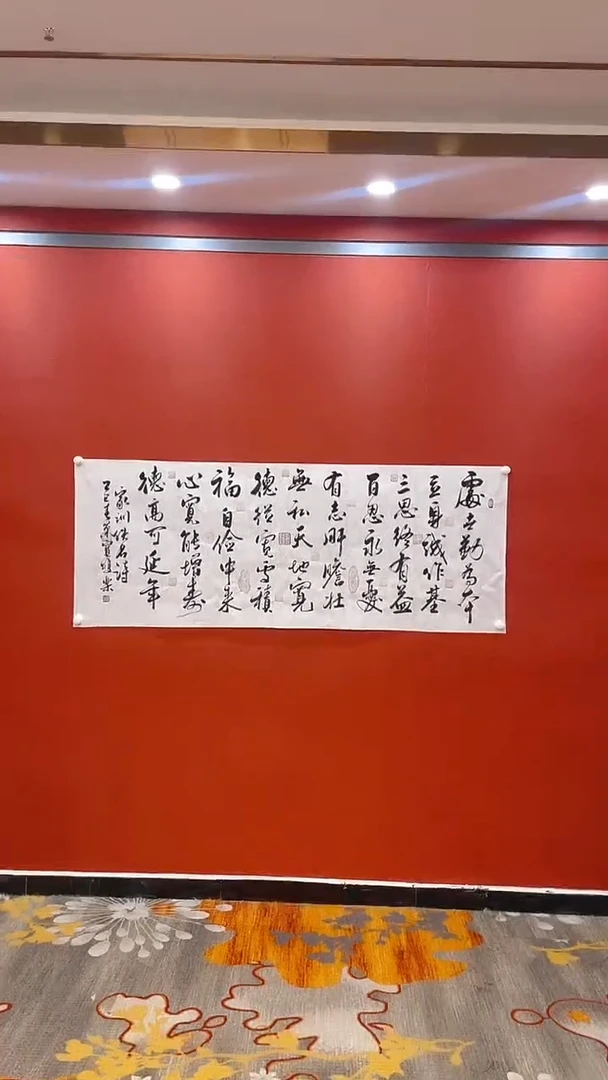 處世勤為本
立身誠作基
三思終有益
百忍永無憂
有志肝膽壯
無私天地寬
德從寬處積
福自儉中来
心寬能增壽
德高可延年
家訓佚名詩
乙巳春